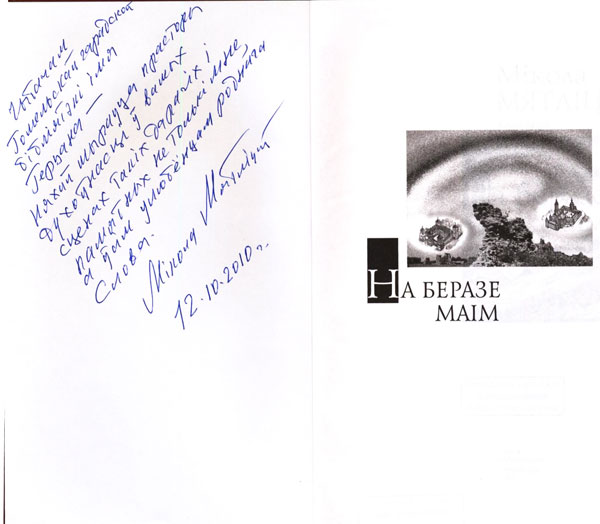 Чытачам
Гомельскай гарадской
бібліятэкі імя
Герцэна —
Няхай шырацца прасторы
духоўнасці ў вашых
сценах такіх дарагіх і
памятных не толькі мне,
а ўсім улюбёнцам роднага
Слова.
Мікола Мятліцкі
12.10.2010 г.
Мікола
НА БЕРАЗЕ
МАІМ